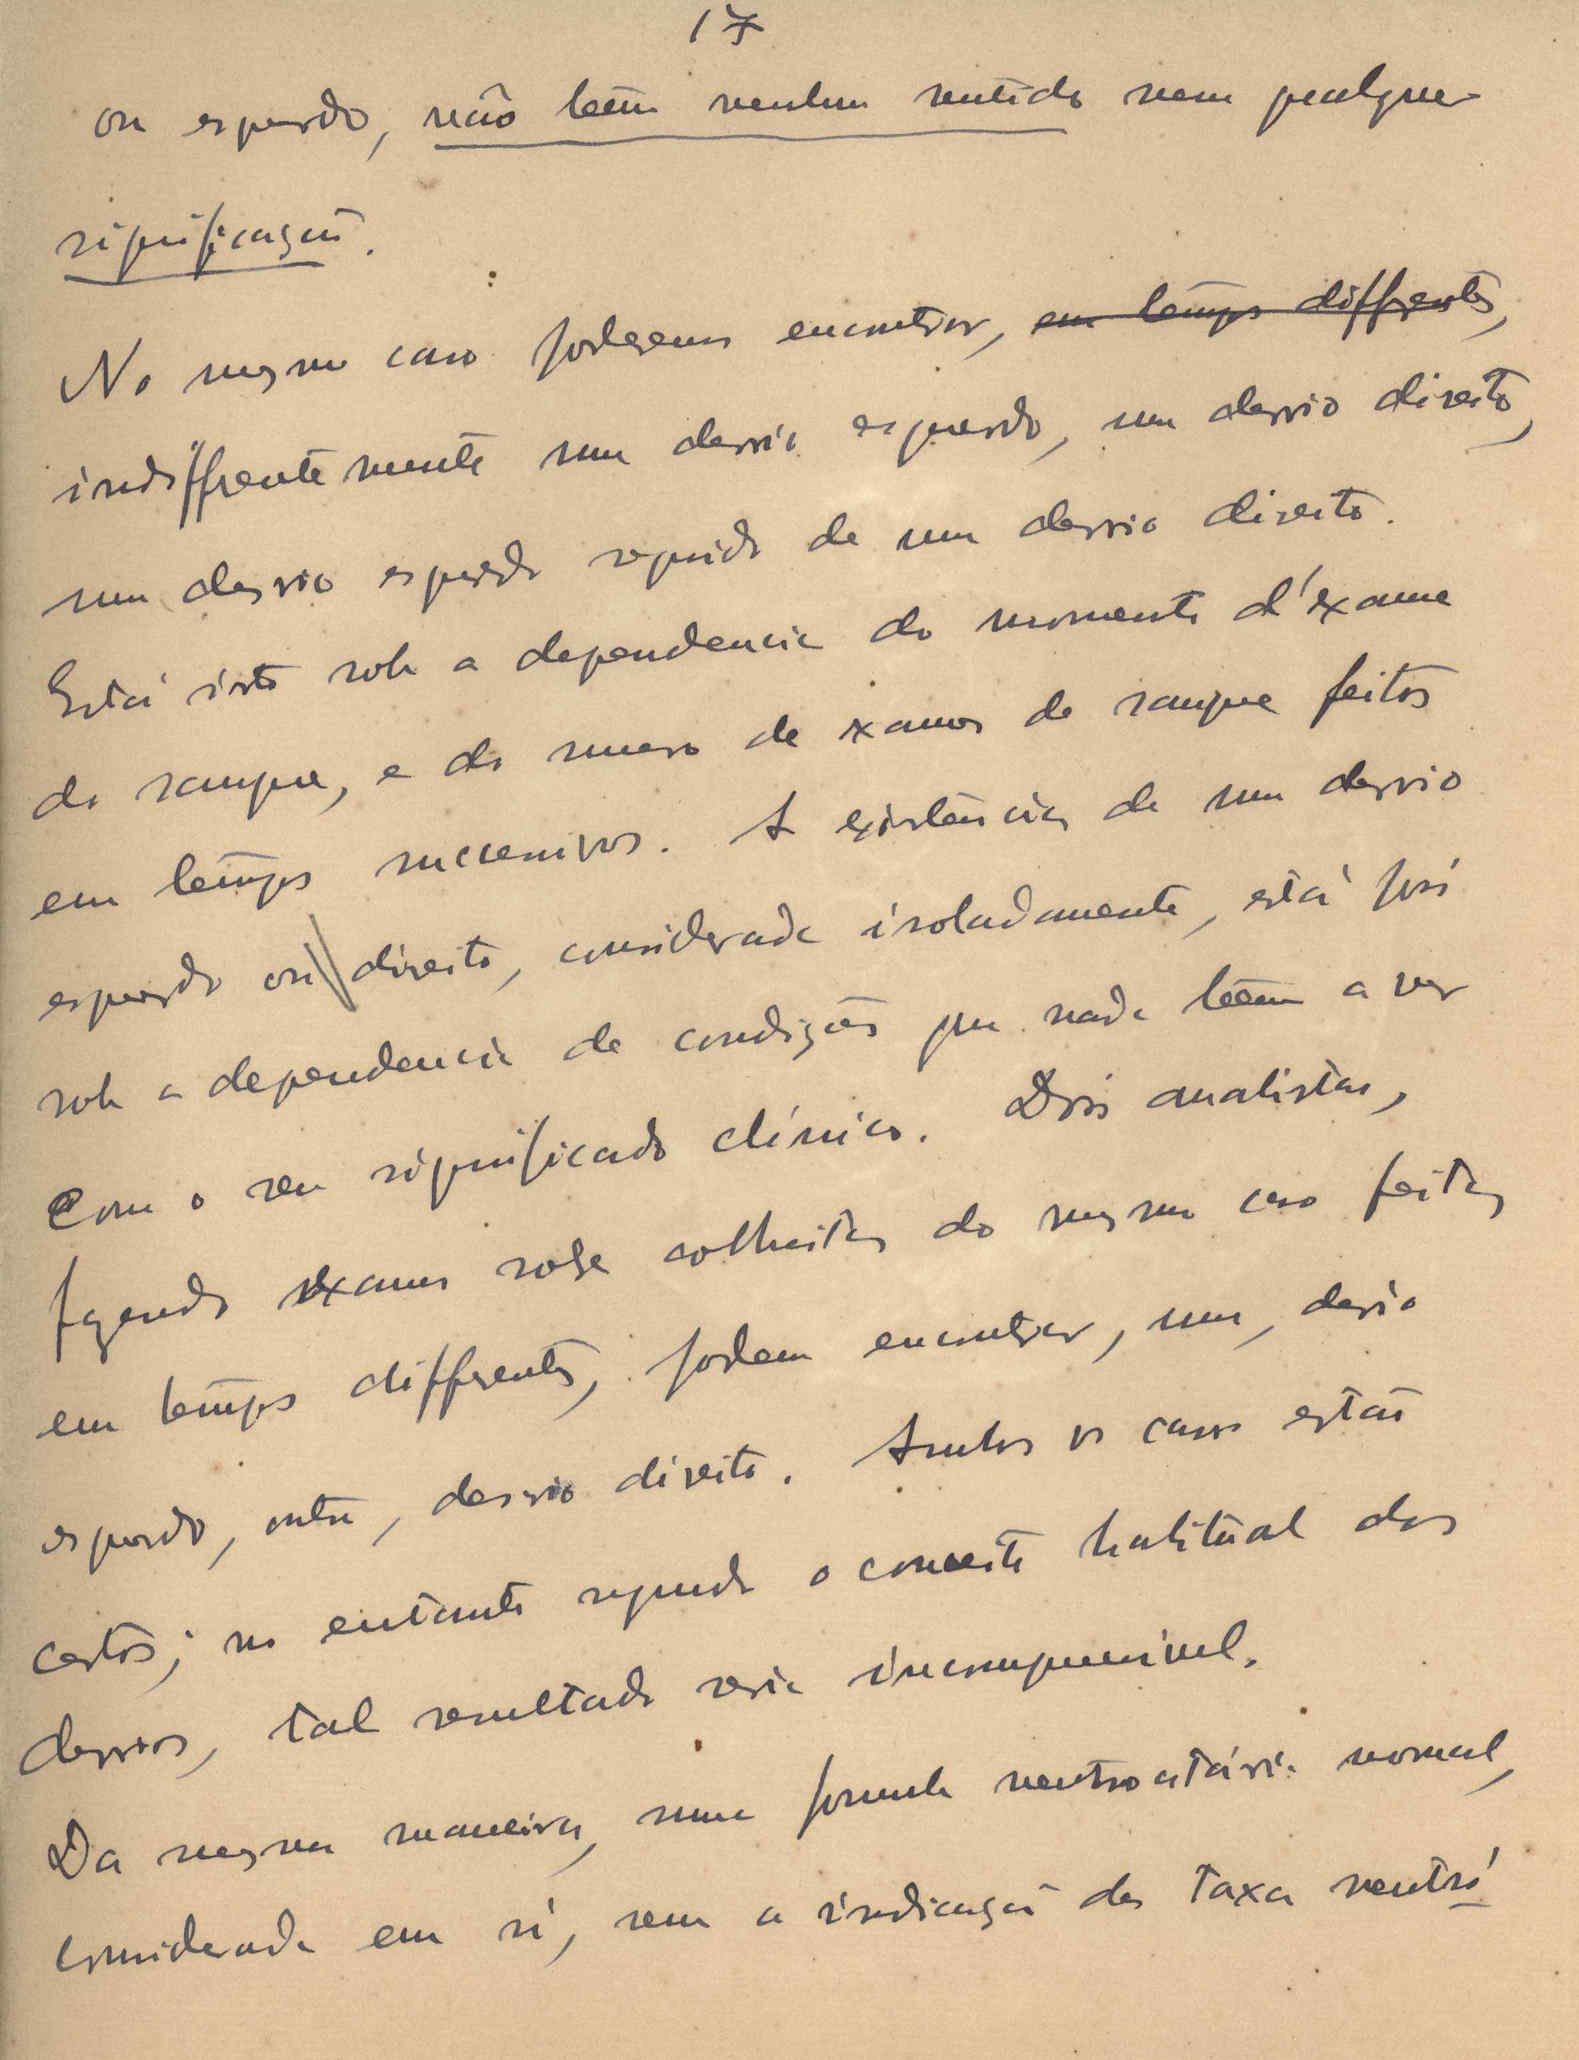 17
ou esquerdo, não teem nenhum sentido nem qualquer
significação.
No mesmo caso poderemos encontrar, em tempos differentes,
indifferentemente um desvio esquerdo, um desvio direito,
um desvio esquerdo seguido de um desvio direito.
Está isto sob a dependencia do momento d'exame
do sangue, e do numero de exames de sangue feitos
em tempos successivos. A existência de um desvio
esquerdo ou direito, considerada isoladamente, está pois
sob a dependencia de condições que nada teem a ver
com o seu significado clínico. Dois analistas,
fazendo exames sobre colheitas do mesmo caso feitas
em tempos differentes, podem encontrar, um, desvio
esquerdo, outro, desvio direito. Ambos os casos estão
certos; no entanto segundo o conceito habitual dos
desvios, tal resultado seria incompreensivel.
Da mesma maneira, uma formula neutrocitária normal,
considerada em si, sem a indicação da taxa neutró